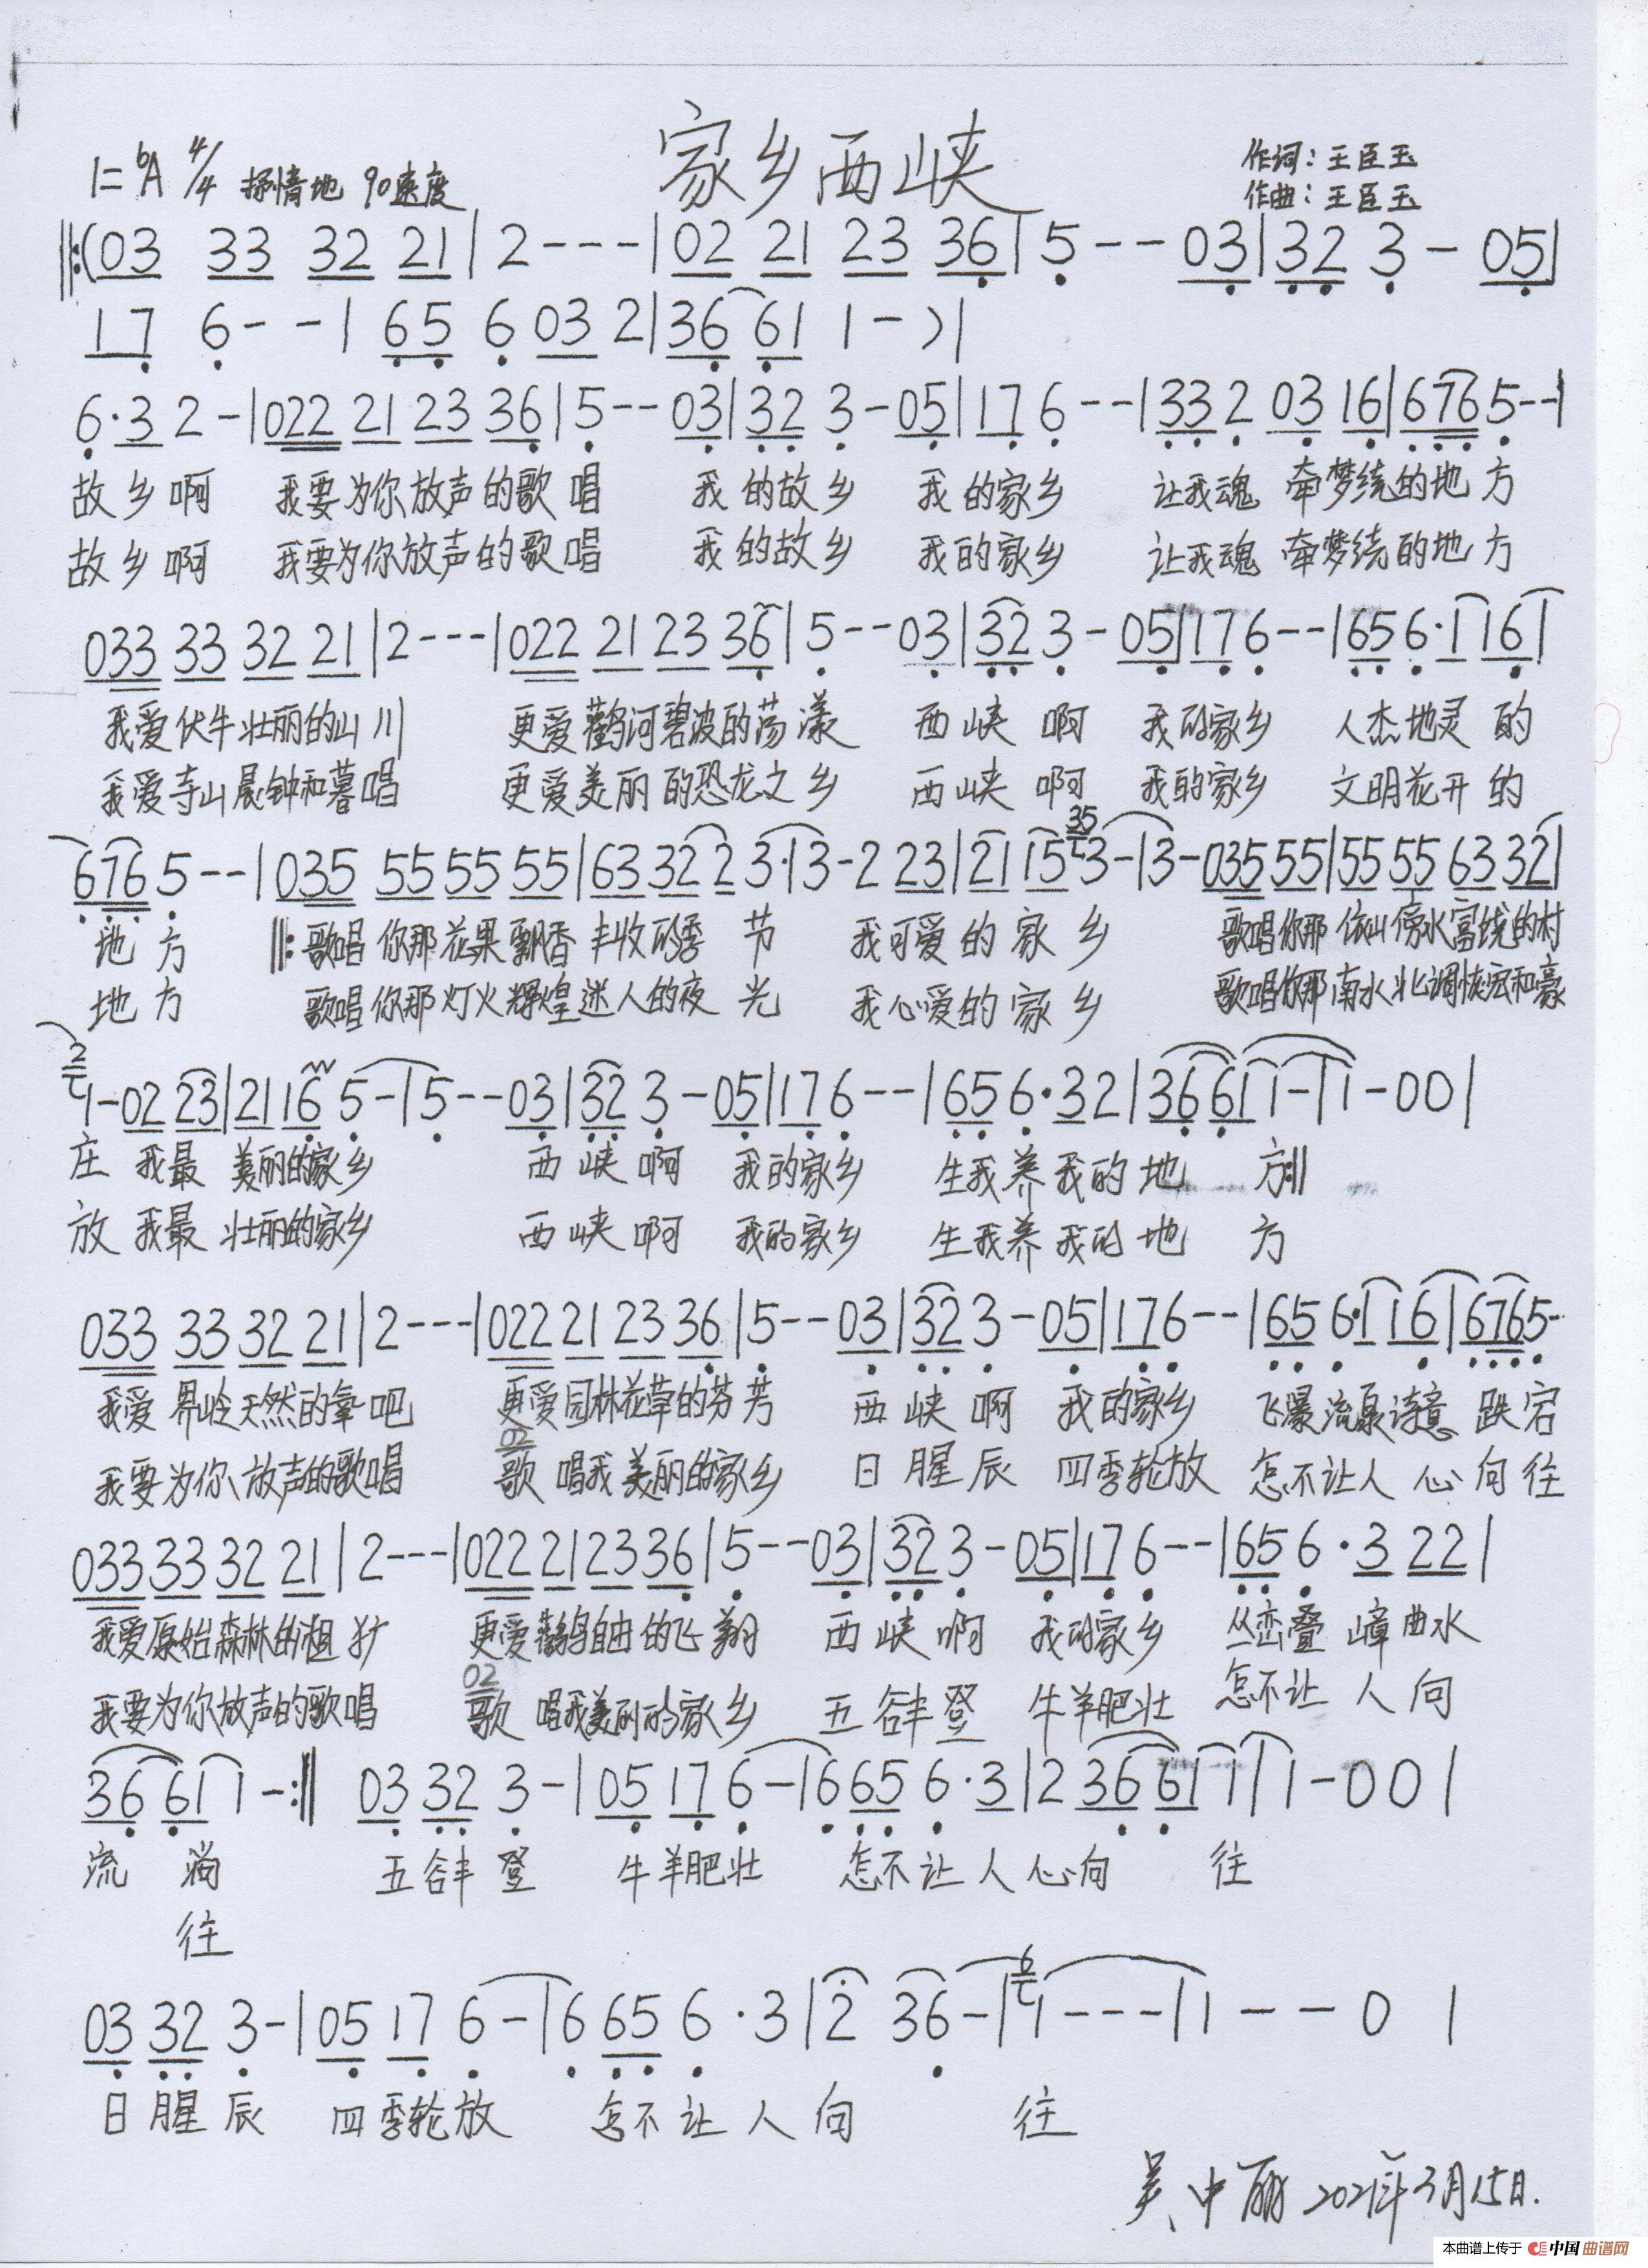 家乡西峡
1=bA 4/4 抒情地 90速度
作词：王臣玉
作曲：王臣玉
‖:(03 33 32 21|2---|02 21 23 36|5--03|32 3-05|
17 6--|65 6 03 2|36 61 1-)|
6·3 2-|022 21 23 36|5--03|32 3-05|17 6--|33 2 03 16|676 5--|
故乡啊 我要为你放声的歌唱 我的故乡 我的家乡 让我魂 牵梦绕的地方
故乡啊 我要为你放声的歌唱 我的故乡 我的家乡 让我魂 牵梦绕的地方
033 33 32 21|2---|022 21 23 36|5--03|32 3-05|17 6--|65 6·1 16|
我爱伏牛壮丽的山川 更爱鹳河碧波的荡漾 西峡啊 我的家乡 人杰地灵的
我爱寺山晨钟和暮唱 更爱美丽的恐龙之乡 西峡啊 我的家乡 文明花开的
676 5--|035 55 55 55|63 32 2 3·|3-2 23|21 15 35 3-|3-035 55|55 55 63 32|
地方 ‖:歌唱你那花果飘香丰收的季节 我可爱的家乡 歌唱你那依山傍水富饶的村
地方 歌唱你那灯火辉煌迷人的夜光 我心爱的家乡 歌唱你那南水北调恢宏和豪
2 1-02 23|21 16 5-|5--03|32 3-05|17 6--|65 6·3 2|36 61 1-|1-00|
庄 我最 美丽的家乡 西峡啊 我的家乡 生我养我的地 方:‖
放 我最 壮丽的家乡 西峡啊 我的家乡 生我养我的地 方
033 33 32 21|2---|022 21 23 36|5--03|32 3-05|17 6--|65 6·1 16|676 5-
我爱界岭天然的氧吧 更爱园林花草的芬芳 西峡啊 我的家乡 飞瀑流泉诗意 跌宕
02
我要为你放声的歌唱 歌唱我美丽的家乡 日月星辰 四季轮放 怎不让人心向往
033 33 32 21|2---|022 21 23 36|5--03|32 3-05|17 6--|65 6·3 22|
我爱原始森林的粗犷 更爱鹳鸟自由的飞翔 西峡啊 我的家乡 丛峦叠嶂曲水
02
我要为你放声的歌唱 歌唱我美丽的家乡 五谷丰登 牛羊肥壮 怎不让人向
36 61 1-:‖ 03 32 3-|05 17 6-|6 65 6·3|2 36 61 1|1-00|
流淌 五谷丰登 牛羊肥壮 怎不让人心向 往
往
03 32 3-|05 17 6-|6 65 6·3|2 36-|6 1---|1---0|
日月星辰 四季轮放 怎不让人向 往
吴中丽 2021年3月15日.
本曲谱上传于 中国曲谱网